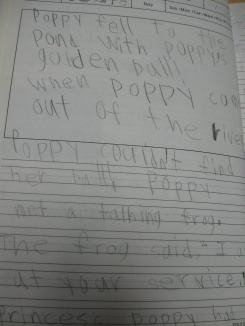 Date
POPPY fell to the
pond with POPPY's
golden ball!
when POPPY
out of the river
POPPY couldn't find
her ball! POPPY
met a talking frog.
The frog said, "I
at your service.
Princess POPPY